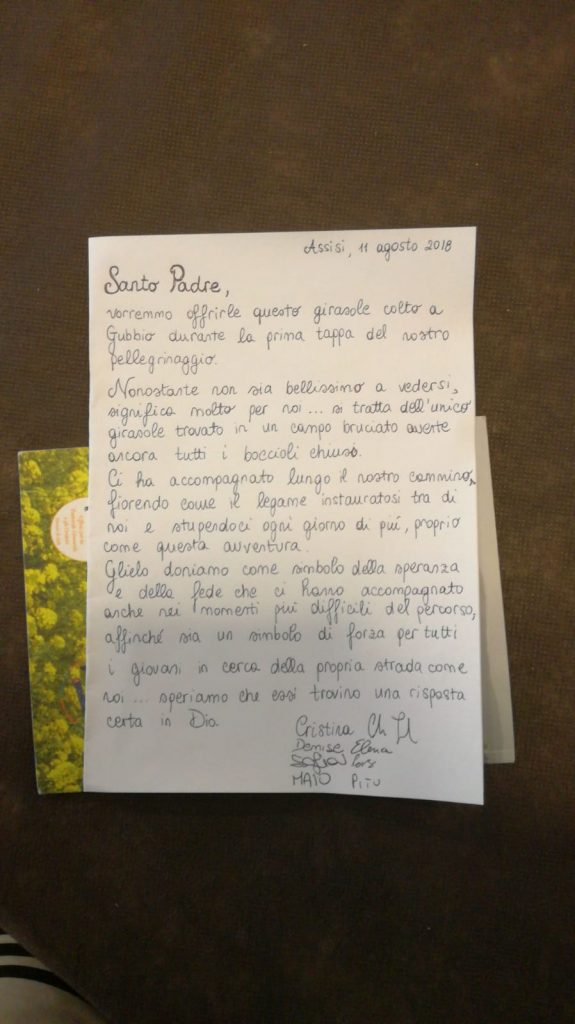 Assisi, 11 agosto 2018
Santo Padre,
vorremmo offrirle questo girasole colto a
Gubbio durante la prima tappa del nostro
pellegrinaggio.
Nonostante non sia bellissimo a vedersi,
significa molto per noi... si tratta dell'unico
girasole trovato in un campo bruciato avente
ancora tutti i boccioli chiusi.
Ci ha accompagnato lungo il nostro cammino,
fiorendo come il legame instauratosi tra di
noi e stupendoci ogni giorno di piú, proprio
come questa avventura.
Glielo doniamo come simbolo della speranza
e della fede che ci hanno accompagnato
anche nei momenti piú difficili del percorso,
affinché sia un simbolo di forza per tutti
i giovani in cerca della propria strada come
noi... speriamo che essi trovino una risposta
certa in Dio.
Cristina
Denise Elena
Sofia
MAIO PITU